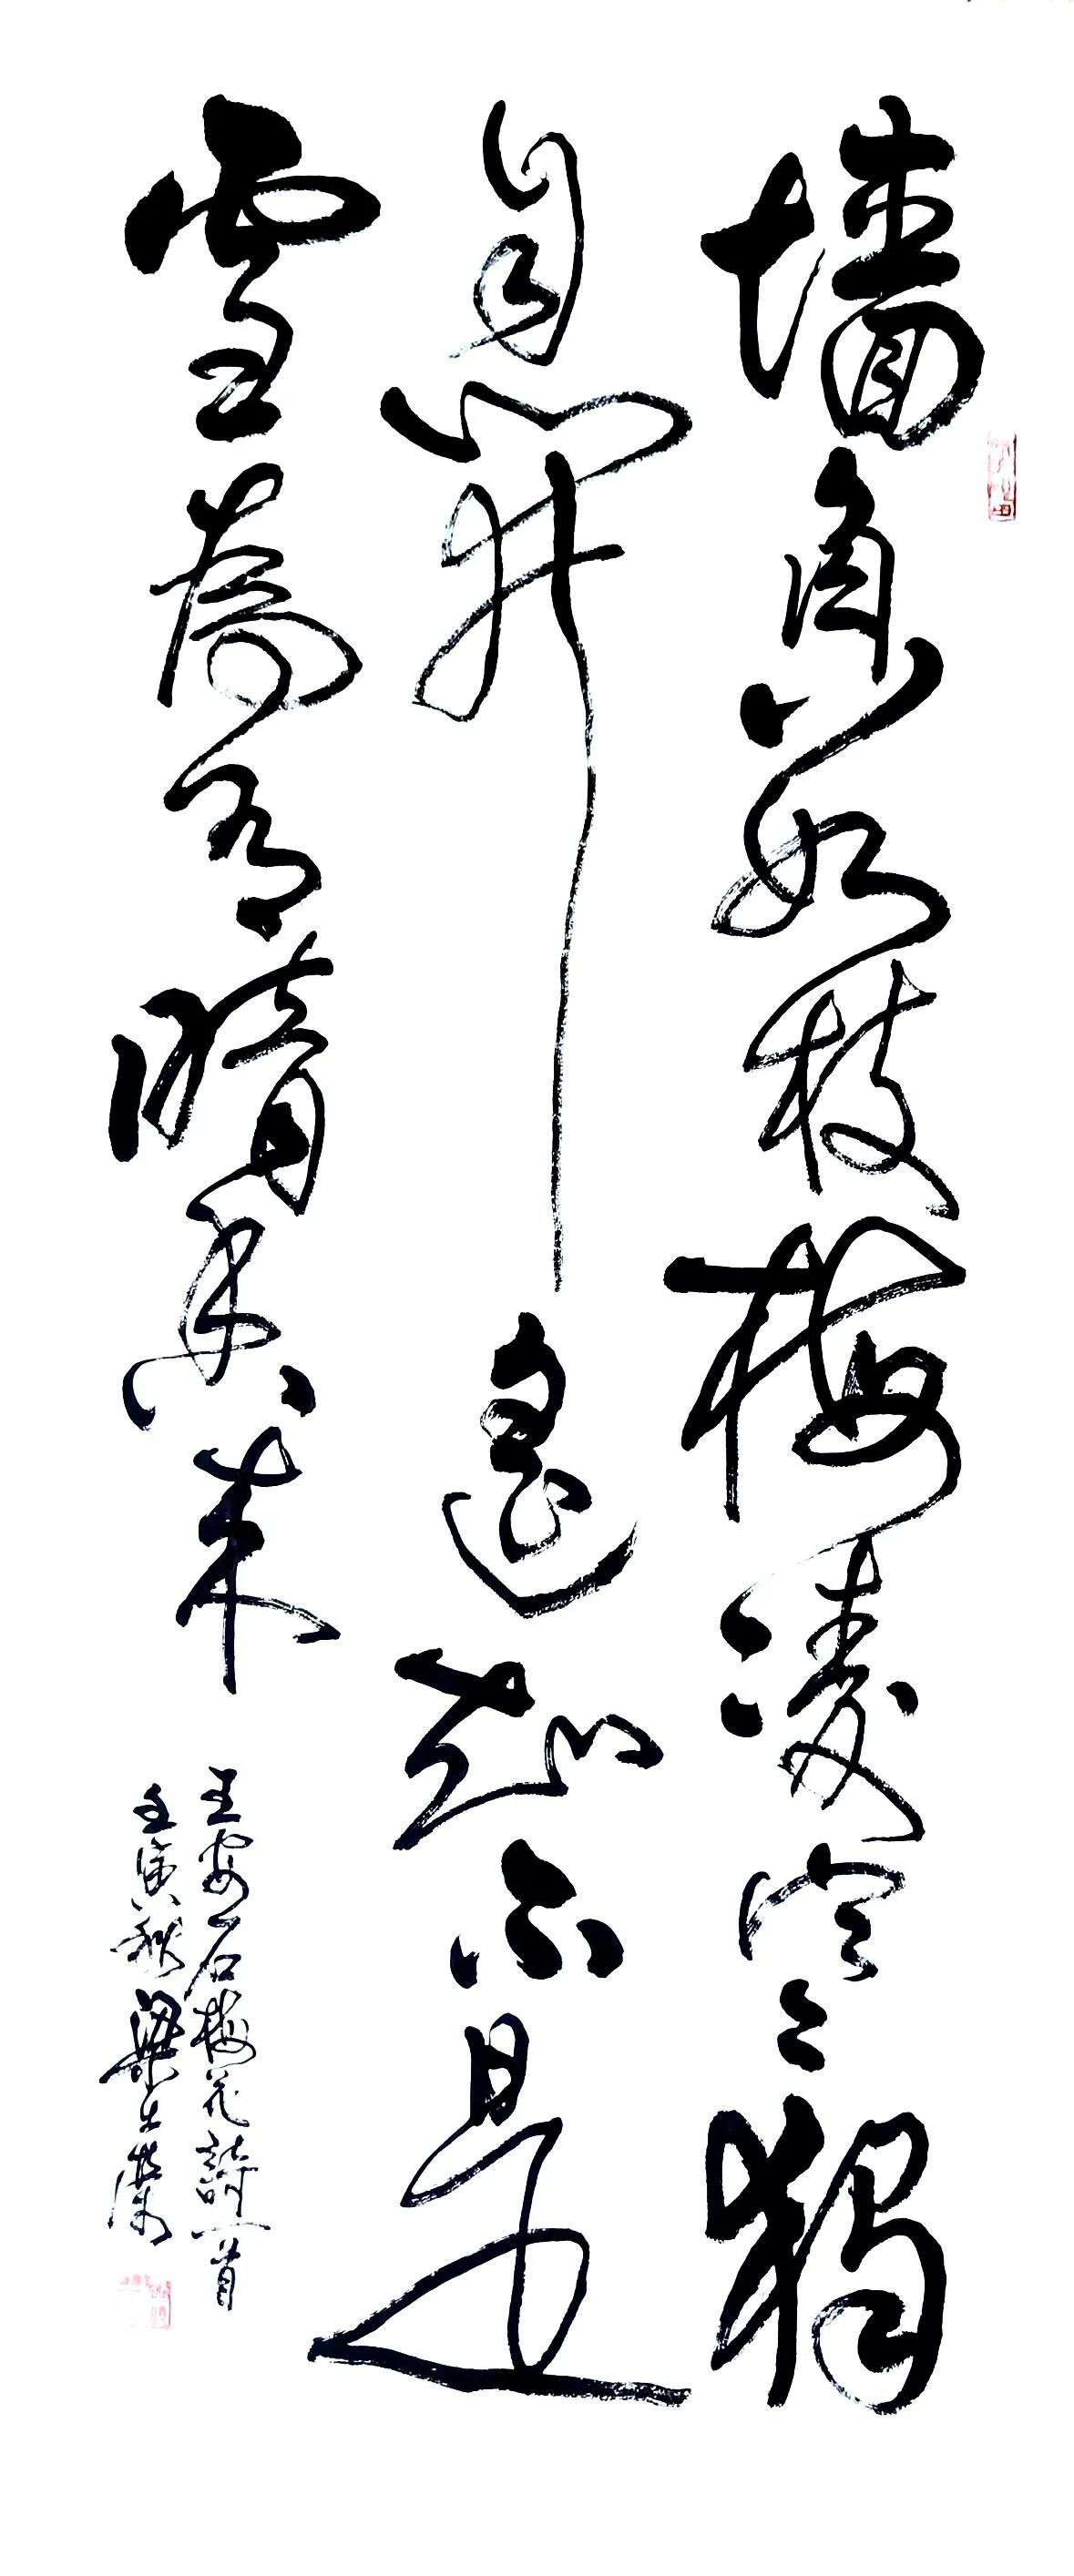 墙角数枝梅凌寒獨
自開遥知不是
雪為有暗香来
王安石梅花詩一首
壬寅秋梁